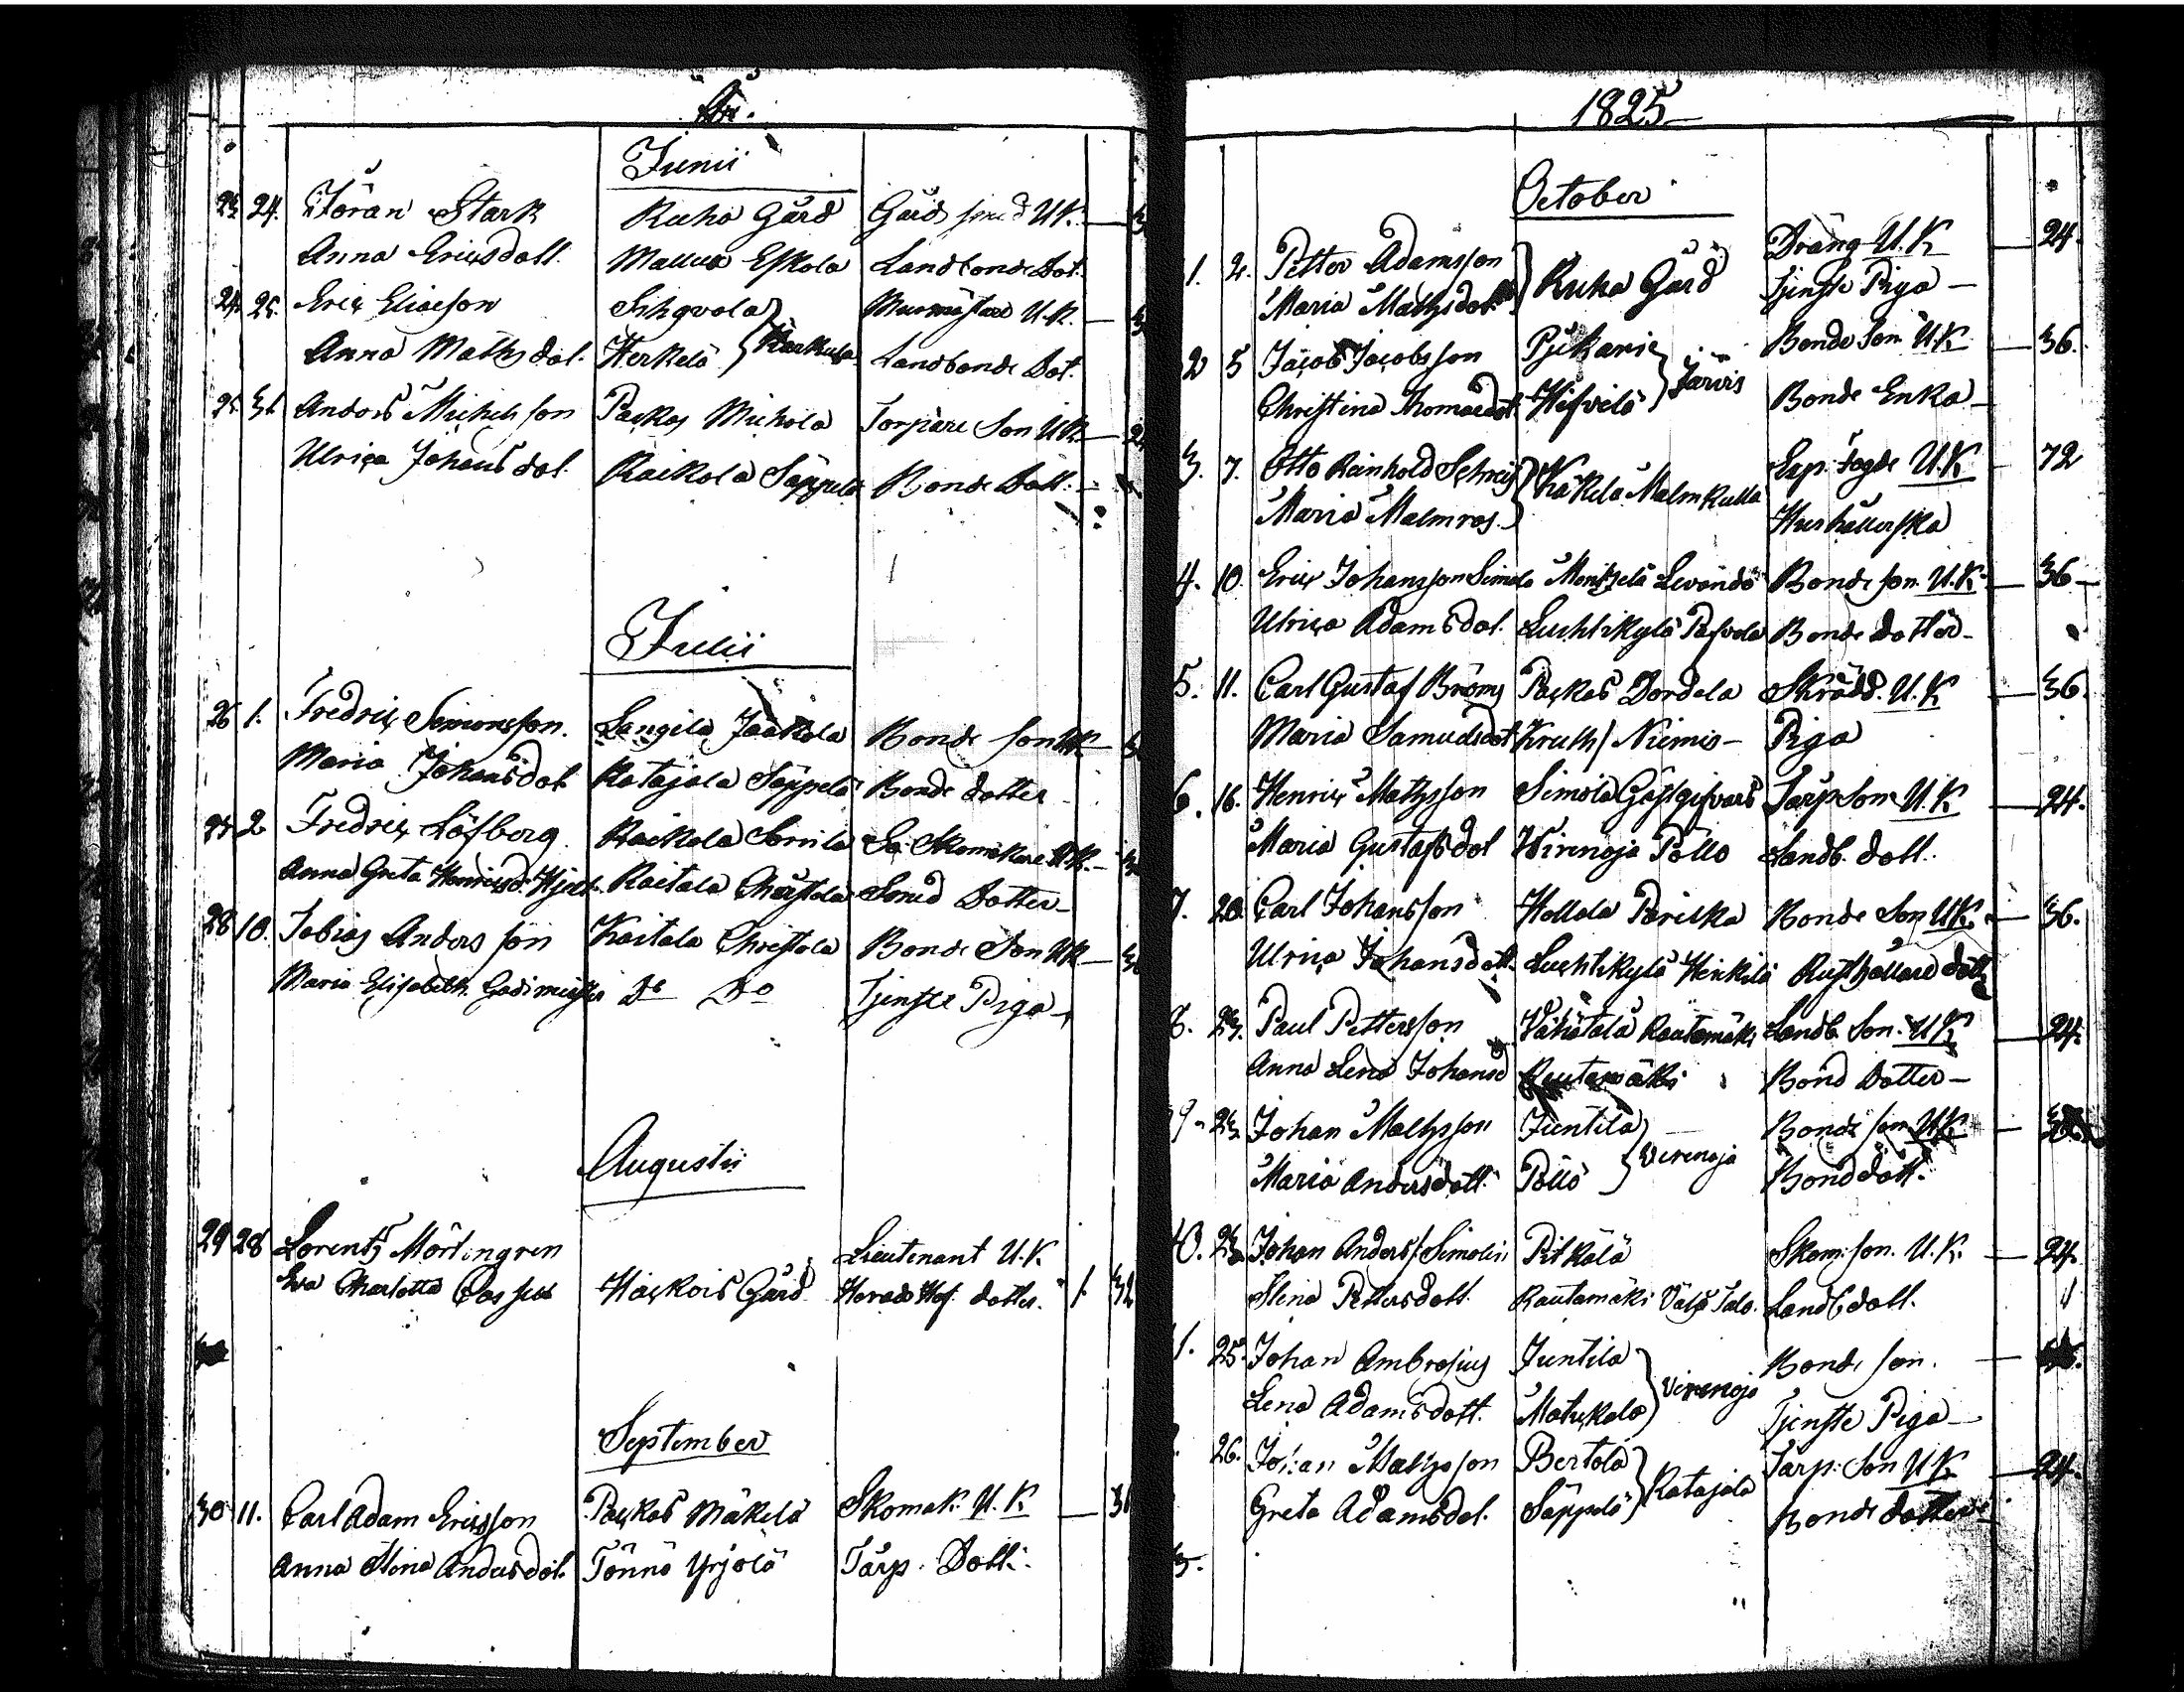 År.
Junii
23. 24. Jöran Stark Ruho Gård Gårds smed U.K.
Anna Ericsdott. Mallua Eskola Landbonde Dot.
24. 25. Eric Eliaeson Sihqvola
Anna Mathsdot. Herkelä Karkula Landbonde Dot.
25. 31. Anders Michelsson Packas Michola Torpare Son U.K. 24
Ulrica Johansdot. Raikola Säppelä Bonde Dott.
Julii
26 1. Fredric Simonsson. Langila Jaakola Bonde son U.K.
Maria Johansdot. Ratajala Säppelä Bonde dotter
27. 2 Fredric Löfberg Raikola Simila So. Skomakare U.K.
Anna Greta Henricsd. Hjelt Raitala Christola Smed Dotter
28 10. Tobias Andersson Kaitala Christola Bonde Son U.K.
Maria Elisabeth Do Do Tjenste Piga
Augustii
29 28 Lorentz Mörtengren Lieutenant U.K.
Eva Charlotta Cas̄seus Hackois Gård Herads Höf. dotter. 1. 32
September
30 11. Carl Adam Ericsson Packas Mäkelä Skomak. U.K.
Anna Stina Andersdot. Tönnö Yrjölä Tårp. Dott.
1825
October
1. 2. Petter Adamsson Ruha Gård Dräng U.K. 24.
Maria Mathsdot. Tjenste Piga
2 5 Jacob Jacobsson Järvis Bonde Son U.K. 36.
Christina Thomaedot. Hifvilä Bonde Enka
3. 7. Otto Reinhold Käkelä Malmkulla Exp. Fogde U.K. 72
Maria Malmros. Hushållerska
4. 10. Eric Johansson Simola Mentzelä Bonde son U.K. 36
Ulrica Adamsdot. Luchtikylä Pasvola Bonde dotter
5. 11. Carl Gustaf Broms Packas Dordela Skrädd. U.K. 36.
Maria Samuelsdot. Niemis Piga
6. 16. Henric Mathsson Simola Gästgifvars Tårp Son U.K. 24.
Maria Gustafsdot Wirenoja Pöllö Landb. dott.
7. 20. Carl Johansson Hollola Parikka Bonde Son U.K. 36.
Ulrica Johansdott. Luchtikylä Heikilä Rusthållare dott
8. 23. Paul Pettersson Vähätalä Rautamäki Landb. Son U.K. 24.
Anna Lena Johansd Rautamäki Bond Dotter
9. 23. Johan Mathsson Juntila Virenoja Bonde son U.K.
Maria Andersdott. Pöllö Bonddott.
40. 23. Johan Anders. Simolin Pitkälä Skom. son. U.K. 24.
Stina Pettersdott. Rautamäki Vähä Talo. Landb dott.
1. 25. Johan Ambrosius Juntila Virenoja Bonde son.
Lena Adamsdott. Matuckala Tjenste Piga
26. Johan Mathsson Bertola Ratajala Tårp. Son U.K. 24.
Greta Adamsdot. Säppelä Bonde dotter
3.